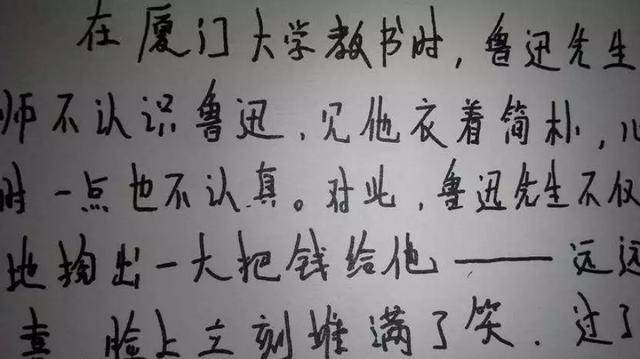 在厦门大学教书时，鲁迅先生
师不认识鲁迅，见他衣着简朴，心
时一点也不认真。对此，鲁迅先生不仅
地掏出一大把钱给他——远远
喜，脸上立刻堆满了笑．过了